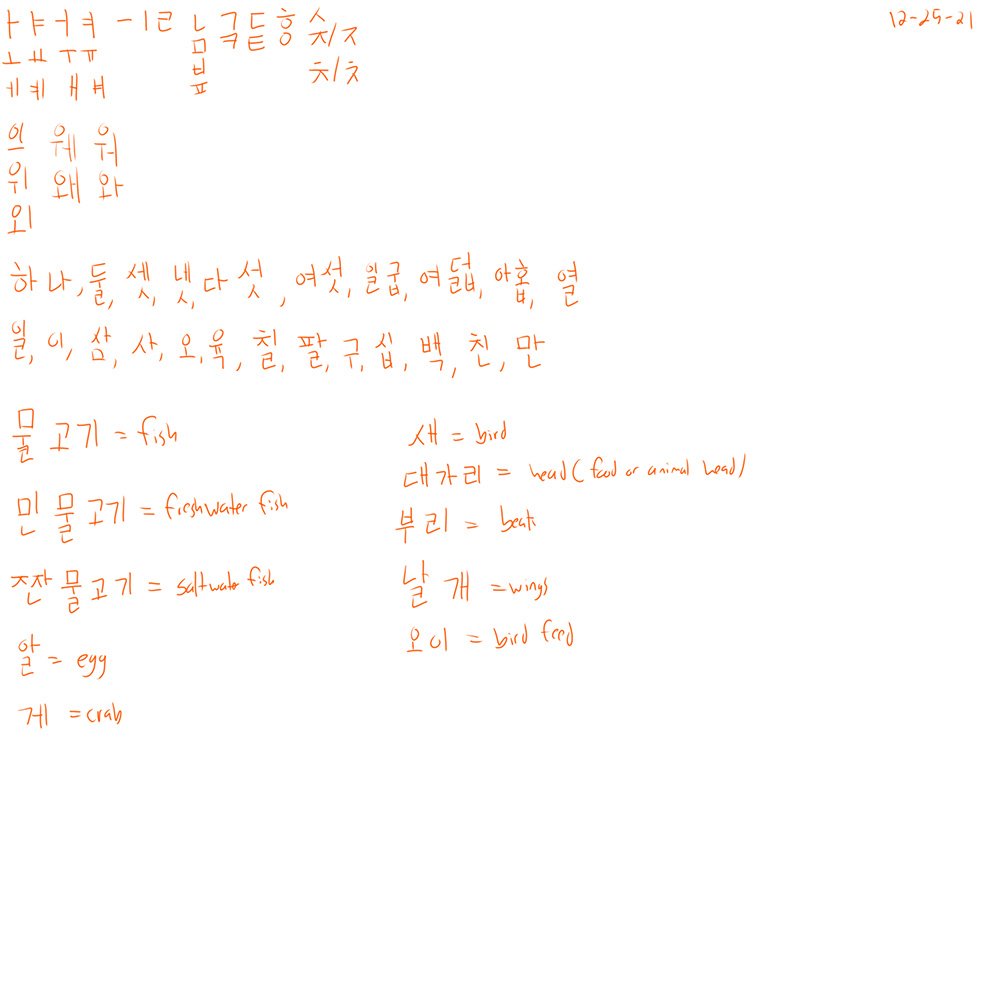 ㅏ ㅑ ㅓ ㅕ ㅡ ㅣ ㄹ ㄴ ㄱ ㅋ ㄷ ㅌ ㅎ ㅇ ㅅ 12-25-21
ㅗ ㅛ ㅜ ㅠ ㅁ ㅈ/ㅈ
ㅔ ㅖ ㅐ ㅒ ㅂ ㅍ ㅊ/ㅊ
의 웨 워
위 왜 와
외
하나, 둘, 셋, 넷, 다섯, 여섯, 일굽, 여덟, 아홉, 열
일, 이, 삼, 사, 오, 육, 칠, 팔, 구, 십, 백, 친, 만
물고기 = fish
민물고기 = freshwater fish
잔물고기 = saltwater fish
알 = egg
게 = crab
새 = bird
대가리 = head (food or animal head)
부리 = beak
날개 = wings
오이 = bird feed